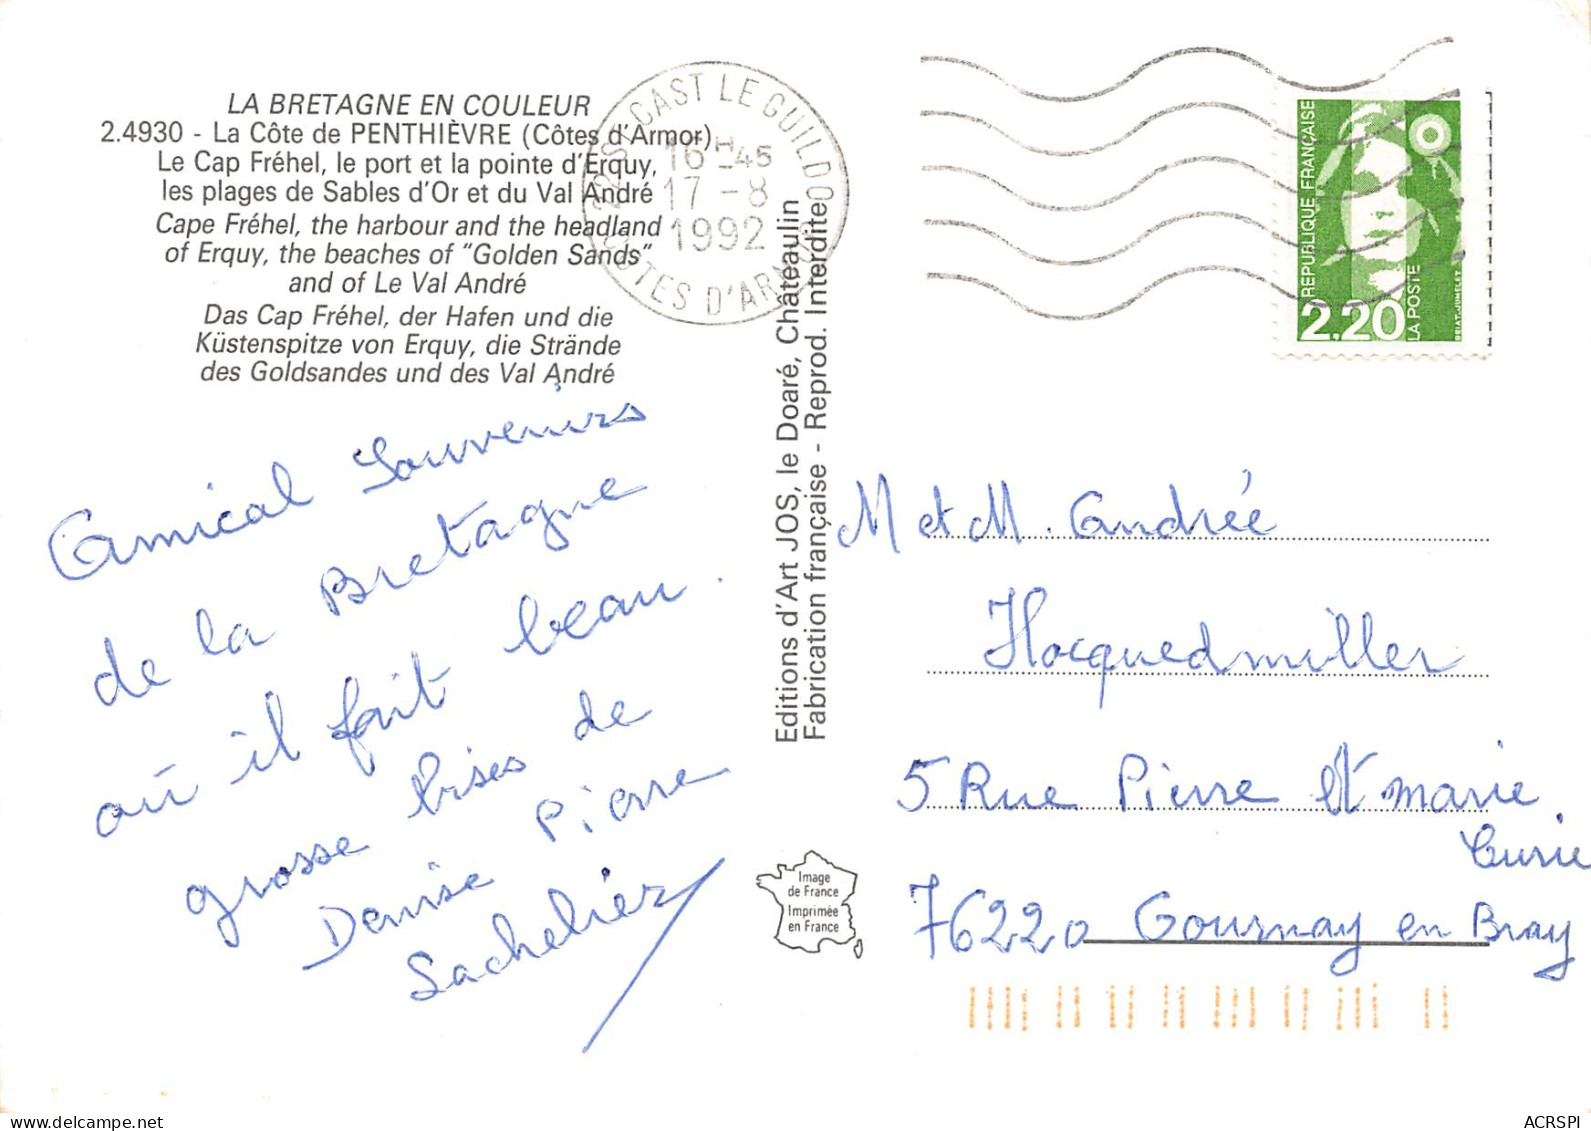 LA BRETAGNE EN COULEUR
2.4930 - La Côte de PENTHIÈVRE (Côtes d'Armor)
Le Cap Fréhel, le port et la pointe d'Erquy,
les plages de Sables d'Or et du Val André
Cape Fréhel, the harbour and the headland
of Erquy, the beaches of "Golden Sands"
and of Le Val André
Das Cap Fréhel, der Hafen und die
Küstenspitze von Erquy, die Strände
des Goldsandes und des Val André
CAST LE GUILDO
16H45
17-8
1992
COTES D'ARMOR
REPUBLIQUE FRANÇAISE
2.20
LA POSTE
BRIAT-JUMELET
Amical Souvenirs
de la Bretagne
où il fait beau.
grosse bises de
Denise Pierre
Sachelier
Editions d'Art JOS, le Doaré, Châteaulin
Fabrication française - Reprod. Interdite
Image
de France
Imprimée
en France
M et M. Andrée
Hocquedmiller
5 Rue Pierre et marie
Curie
76220 Gournay en Bray
ACRSPI